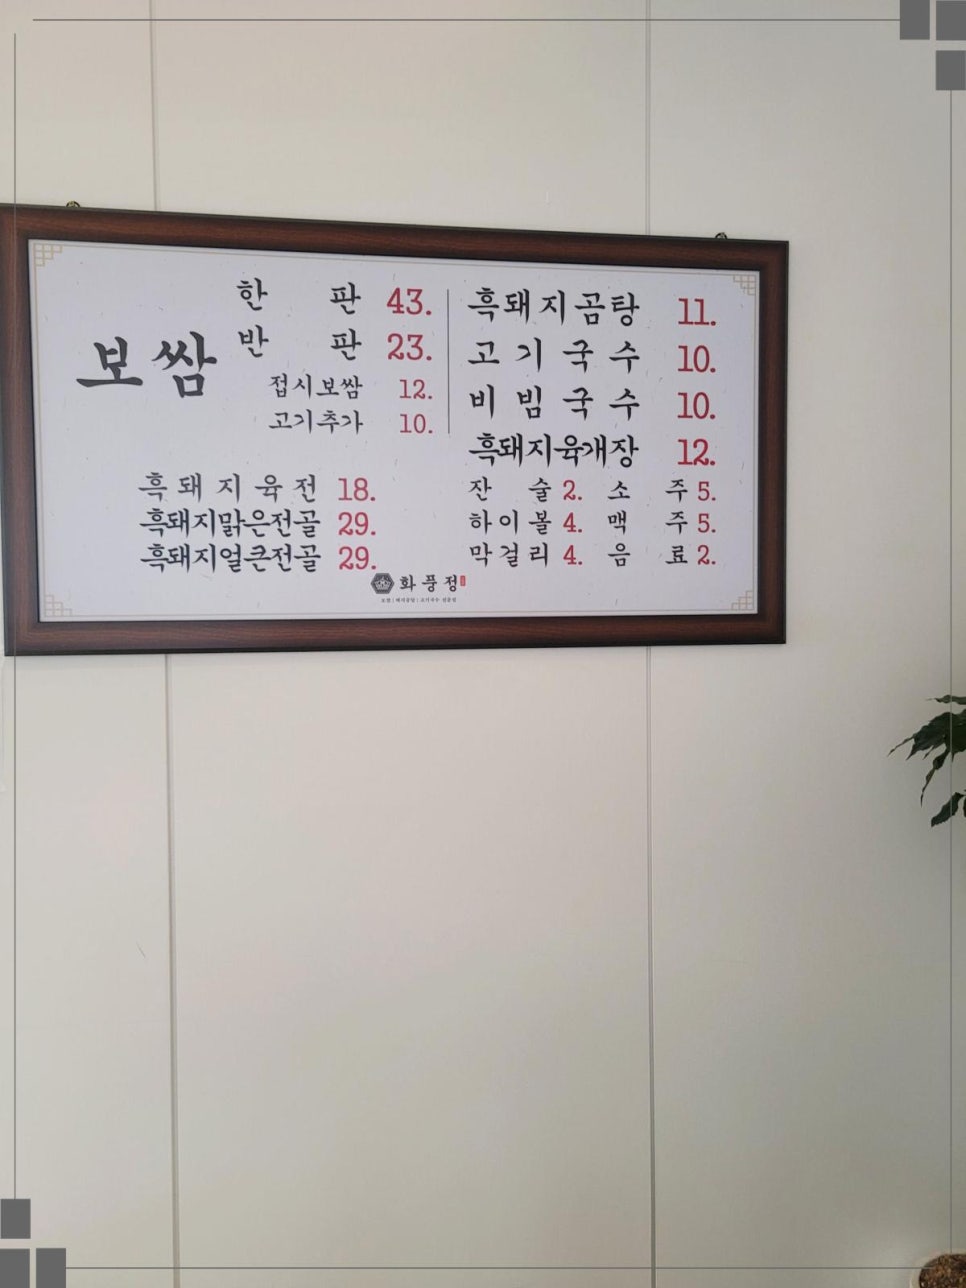 보쌈
한 판 43.
반 판 23.
접시보쌈 12.
고기추가 10.
흑돼지육전 18.
흑돼지맑은전골 29.
흑돼지얼큰전골 29.
흑돼지곰탕 11.
고기국수 10.
비빔국수 10.
흑돼지육개장 12.
잔 술 2. 소 주 5.
하이볼 4. 맥 주 5.
막걸리 4. 음 료 2.
화풍정